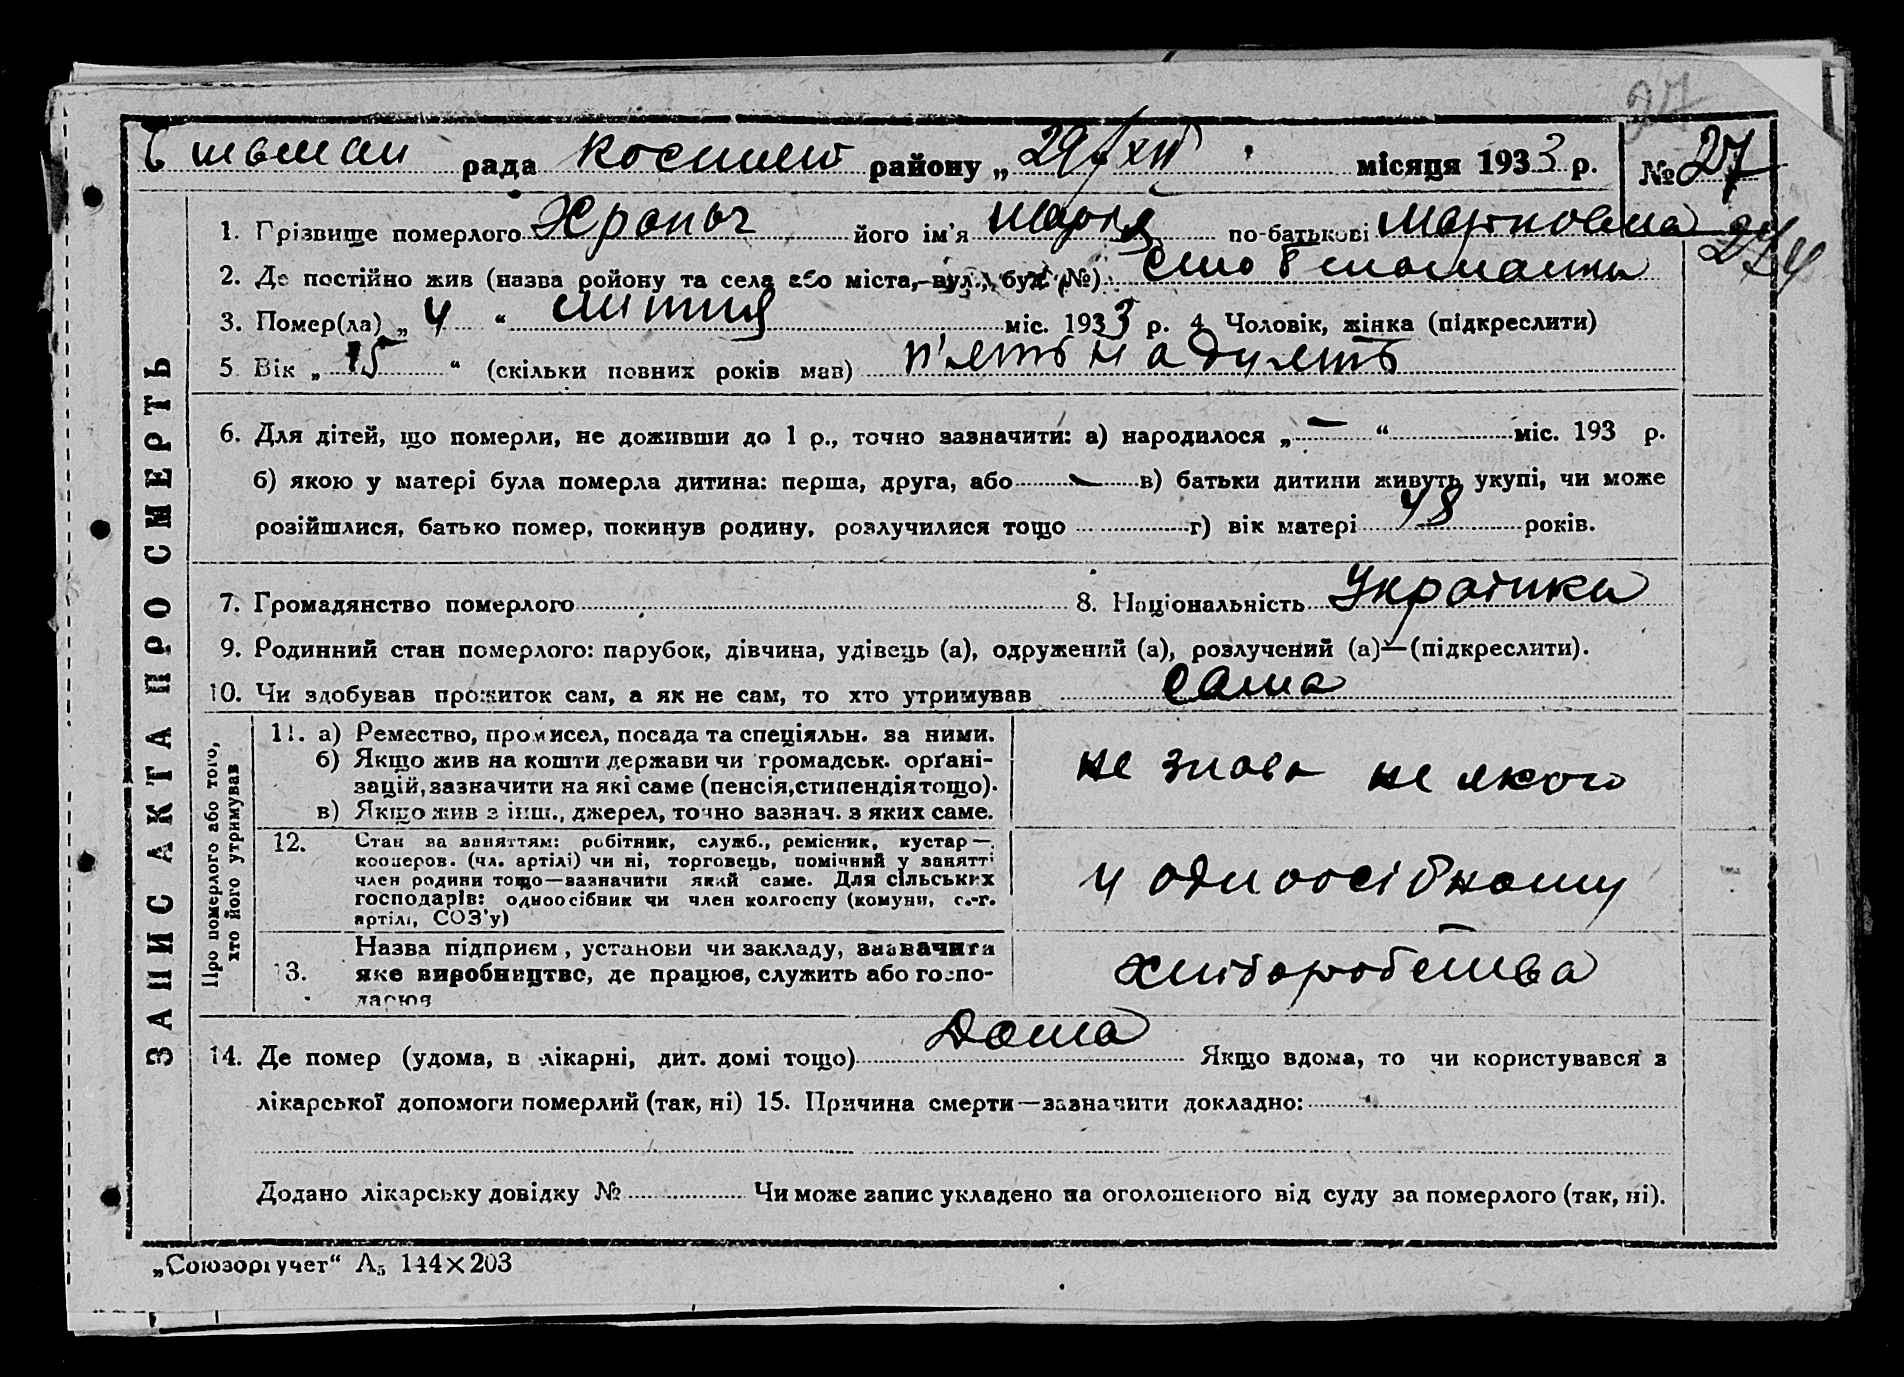 27
рада район у „ 29/XII місяця 1933 р. № 27
1. Грізвище померлого Хропач його ім'я Марія по-батькові Мартновна 274
2. Де постійно жив (назва ройону та села або міста, вул., буд. №) Село
3. Помер(ла) „ 4 “ липня міс. 1933 р. 4. Чоловік, жінка (підкреслити)
5 Вік „ 15 “ (скільки повних років мав) п'ятьнадцять
6. Для дітей, що померли, не доживши до 1 р., точно зазначити: а) народилося „ — “ міс. 193 р.
б) якою у матері була померла дитина: перша, друга, або — в) батьки дитини живуть укупі, чи може
розійшлися, батько помер, покинув родину, розлучилися тощо г) вік матері 48 років.
7. Громадянство померлого 8. Національність Українка
9. Родинний стан померлого: парубок, дівчина, удівець (а), одружений (а), розлучений (а)—(підкреслити).
10. Чи здобував прожиток сам, а як не сам, то хто утримував Сама
ЗАПИС АКТА ПРО СМЕРТЬ
Про померлого або того,
хто його утримував
11. а) Ремество, промисел, посада та спеціяльн. за ними.
б) Якщо жив на кошти держави чи громадськ. орґані-
зацій, зазначити на які саме (пенсія, стипендія тощо).
в) Якщо жив з інш., джерел, точно зазнач. з яких саме.
не знала не якого
12. Стан за заняттям: робітник, служб., ремісник, кустар—
кооперов. (чл. артілі) чи ні, торговець, помічний у занятті
член родини тощо—зазначити який саме. Для сільських
господарів: одноосібник чи член колгоспу (комуни, с.-г.
артілі, СОЗ'у)
у одноосібному
13. Назва підприєм, установи чи закладу, зазначити
яке виробництво, де працює, служить або госпо-
дарює
хліборобства
14. Де помер (удома, в лікарні, дит. домі тощо) Дома Якщо вдома, то чи користувався з
лікарської допомоги померлий (так, ні) 15. Причина смерти—зазначити докладно:
Додано лікарську довідку № Чи може запис укладено на оголошеного від суду за померлого (так, ні).
„Союзоргучет“ А₅ 144×203